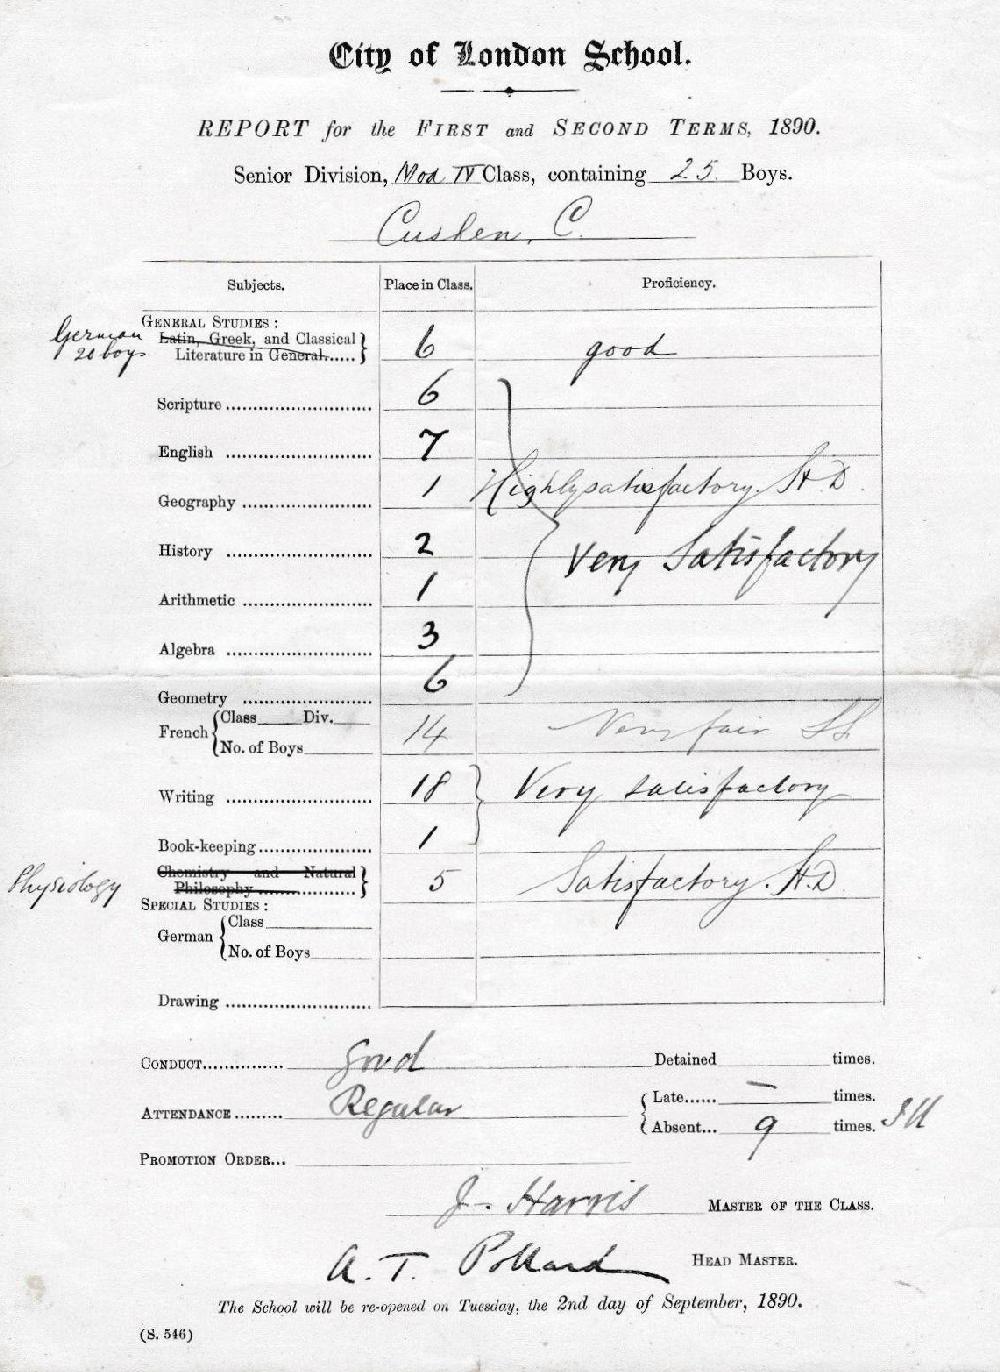 City of London School.
REPORT for the FIRST and SECOND TERMS, 1890.
Senior Division, Mod IV Class, containing 25 Boys.
Cushen, C.
Subjects. Place in Class. Proficiency.
GENERAL STUDIES:
German 20 boys Latin, Greek, and Classical Literature in General..... 6 good
Scripture 6
English 7
Geography 1 Highly satisfactory. H.D.
History 2 Very Satisfactory
Arithmetic 1
Algebra 3
Geometry 6
French Class Div. No. of Boys 14 Very fair
Writing 18 Very satisfactory
Book-keeping 1
Physiology Chemistry and Natural Philosophy 5 Satisfactory. H.D.
SPECIAL STUDIES:
German Class
No. of Boys
Drawing
CONDUCT good Detained times.
ATTENDANCE Regular Late...... — times.
Absent... 9 times. JH
PROMOTION ORDER...
J. Harris MASTER OF THE CLASS.
A. T. Pollard HEAD MASTER.
The School will be re-opened on Tuesday, the 2nd day of September, 1890.
(S. 546)